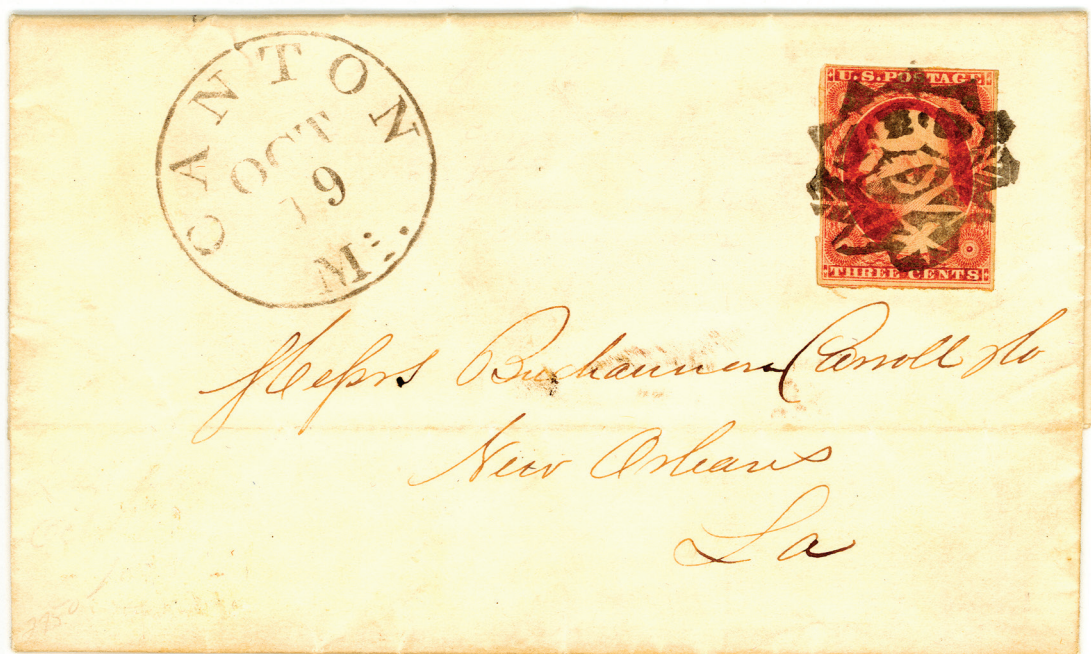 CANTON
OCT
19
U.S. POSTAGE
THREE CENTS
Messrs Buchannon Carroll & Co
New Orleans
La